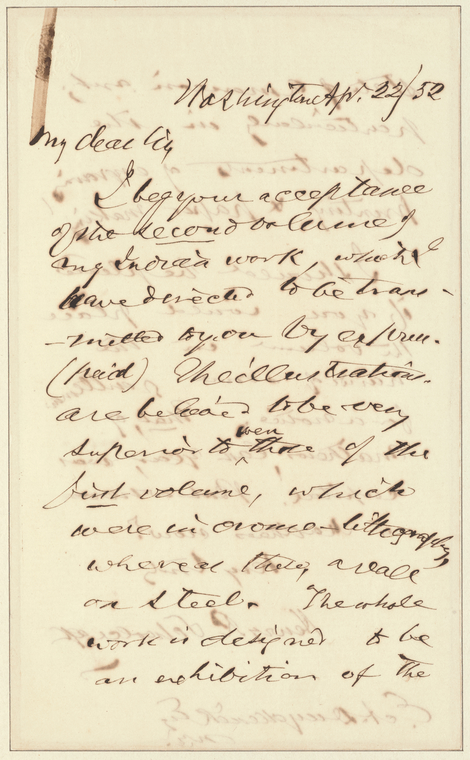 Washington Ap. 22/52
My dear Sir,
I beg your acceptance
of the second volume of
my Indian work, which I
have directed to be trans-
-mitted to you by express.
(paid) The illustrations.
are believed to be very
superior to even those of the
first volume, which
were in cromo-lithography,
whereas these, are all
on steel. The whole
work is designed to be
an exhibition of the